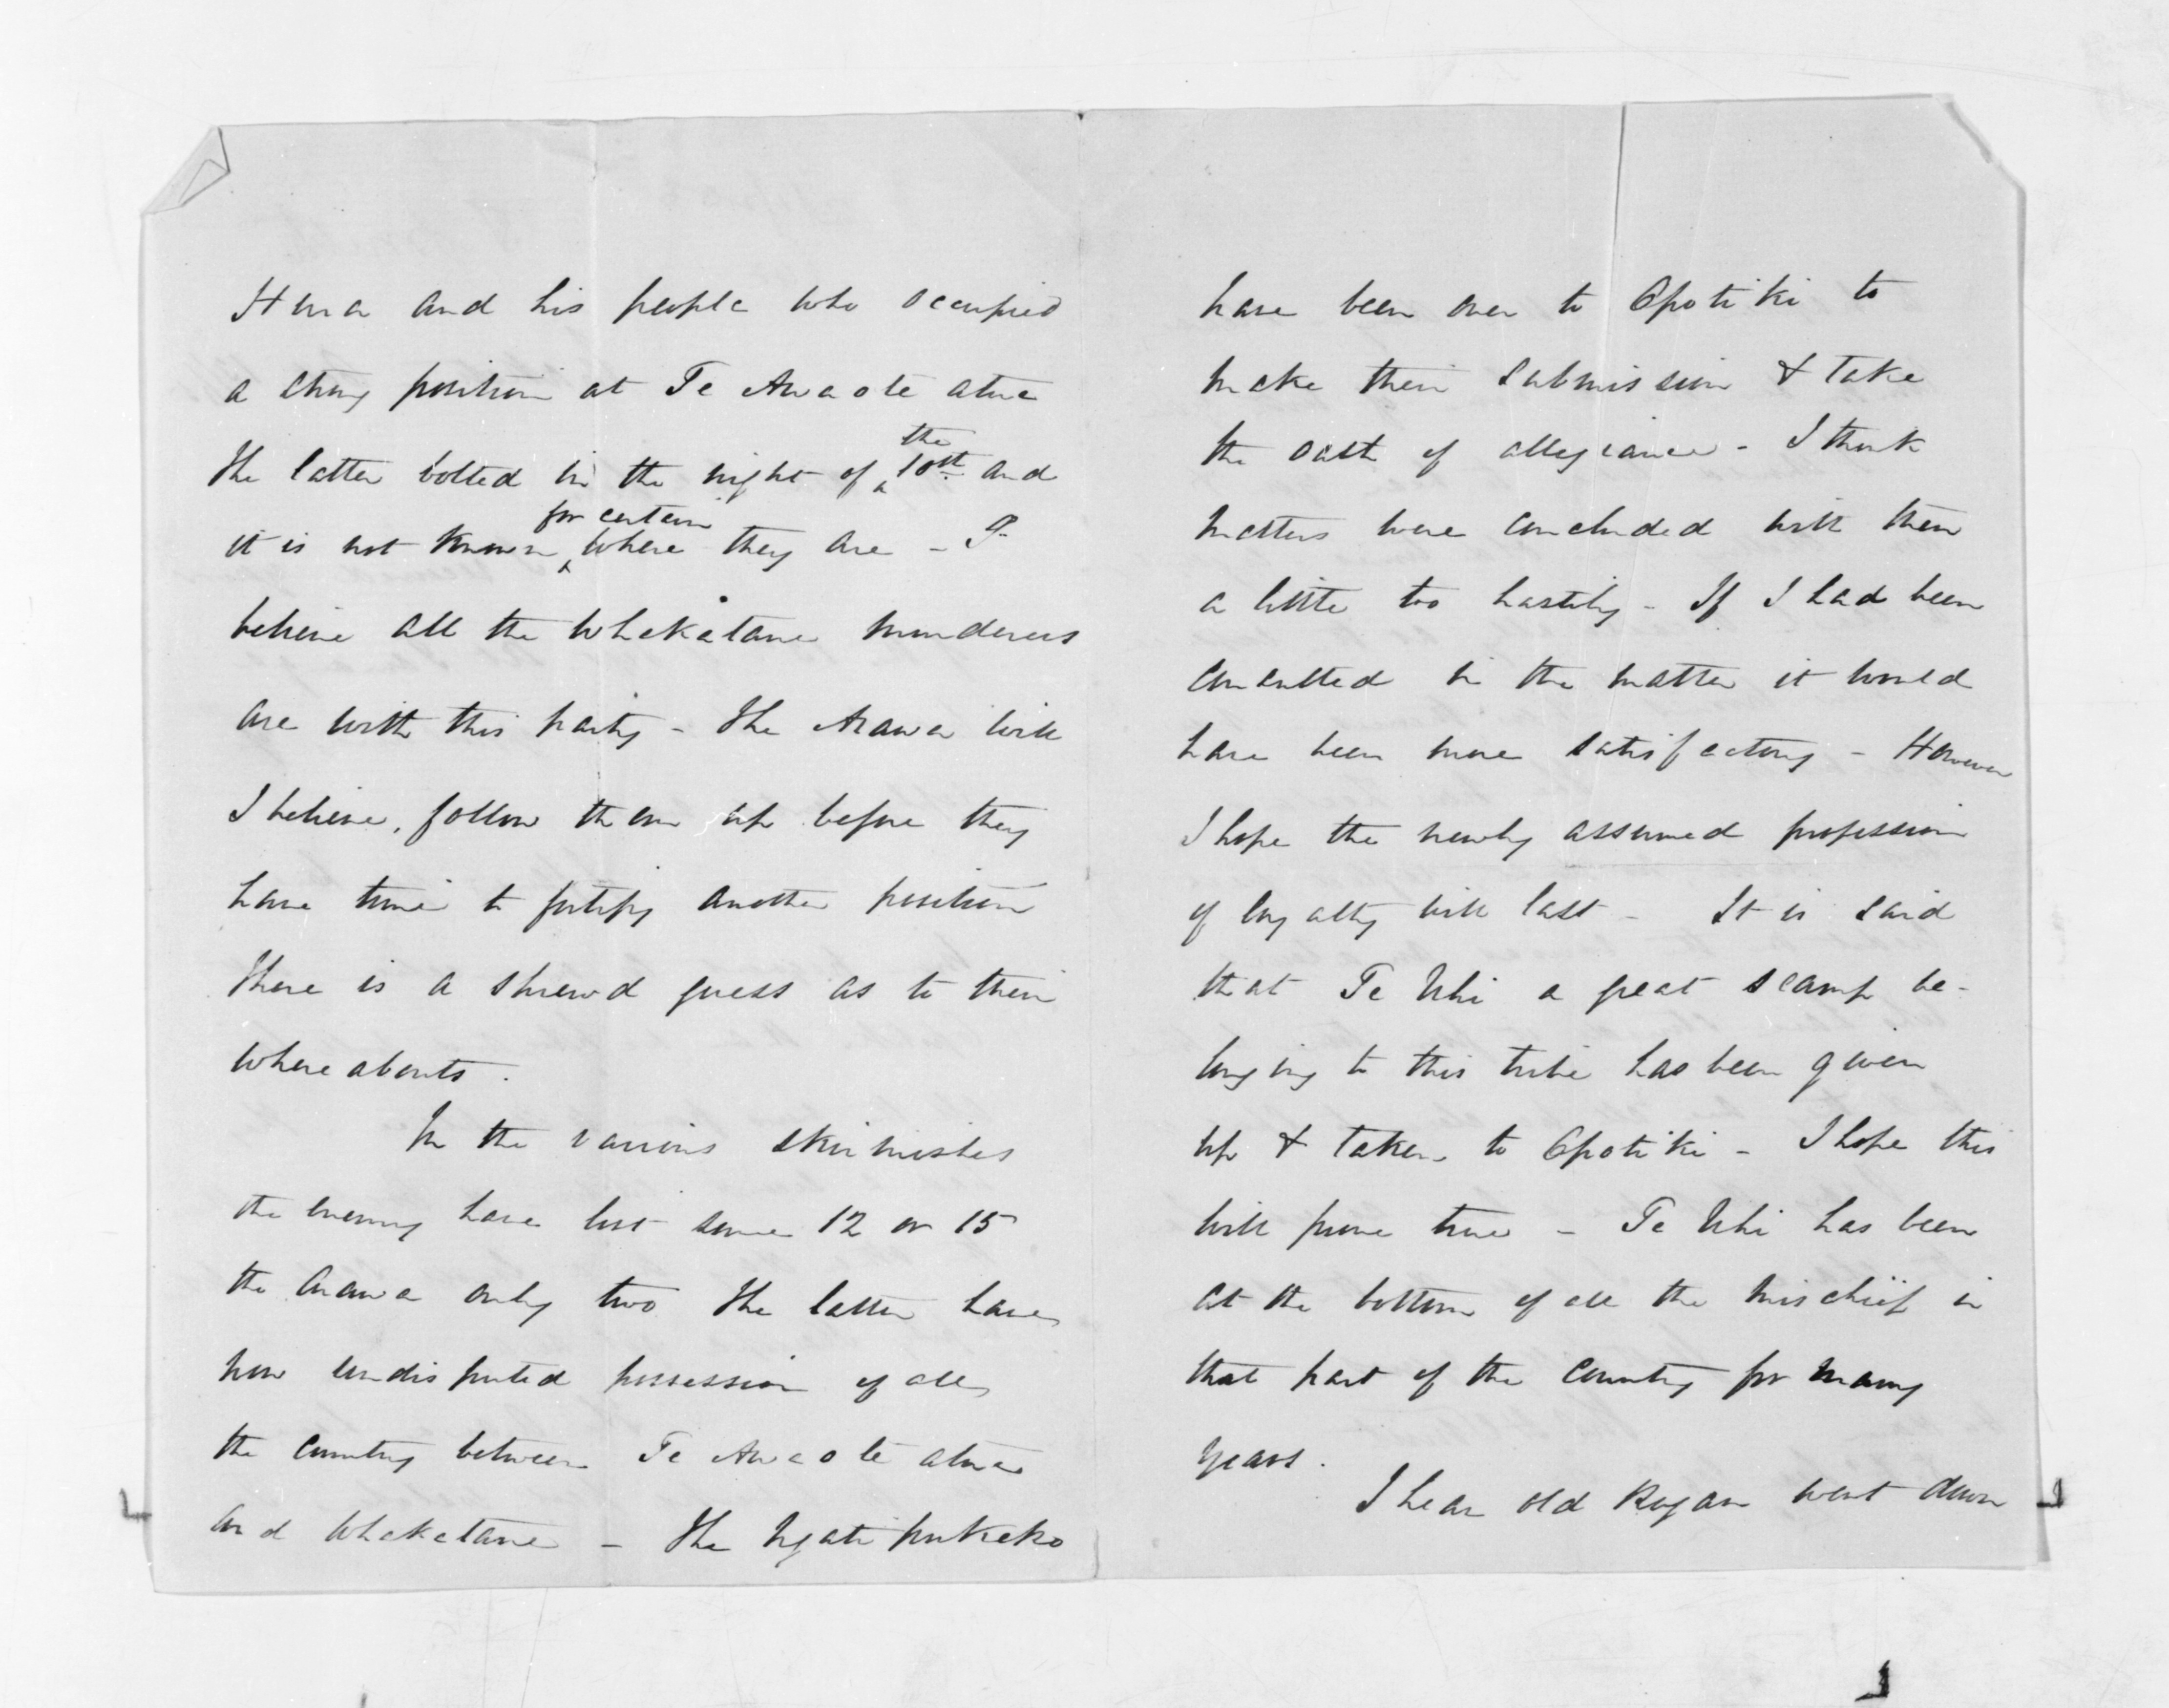 Hura and his people who occupied
a strong position at Te Awa o te atua
The latter bolted in the night of the 10th and
it is not known for certain where they are – I
believe all the Whakatane murderers
are with this party – The Arawa will
I believe, follow them up before they
have time to fortify another position
There is a shrewd guess as to their
whereabouts.
In the various skirmishes
the enemy have lost some 12 or 15
the Arawa only two The latter have
now undisputed possession of all
the country between Te Awa o te atua
and Whakatane – The Ngatipukeko
have been over to Opotiki to
make their submission & take
the oath of allegiance – I think
matters were concluded with them
a little too hastily – If I had been
consulted in the matter it would
have been more satisfactory – However
I hope the newly assumed profession
of loyalty will last – It is said
that Te Uhi a great scamp be-
longing to this tribe has been given
up & taken to Opotiki – I hope this
will prove true – Te Uhi has been
at the bottom of all the mischief in
that part of the country for many
years.
I hear old Rogan went down